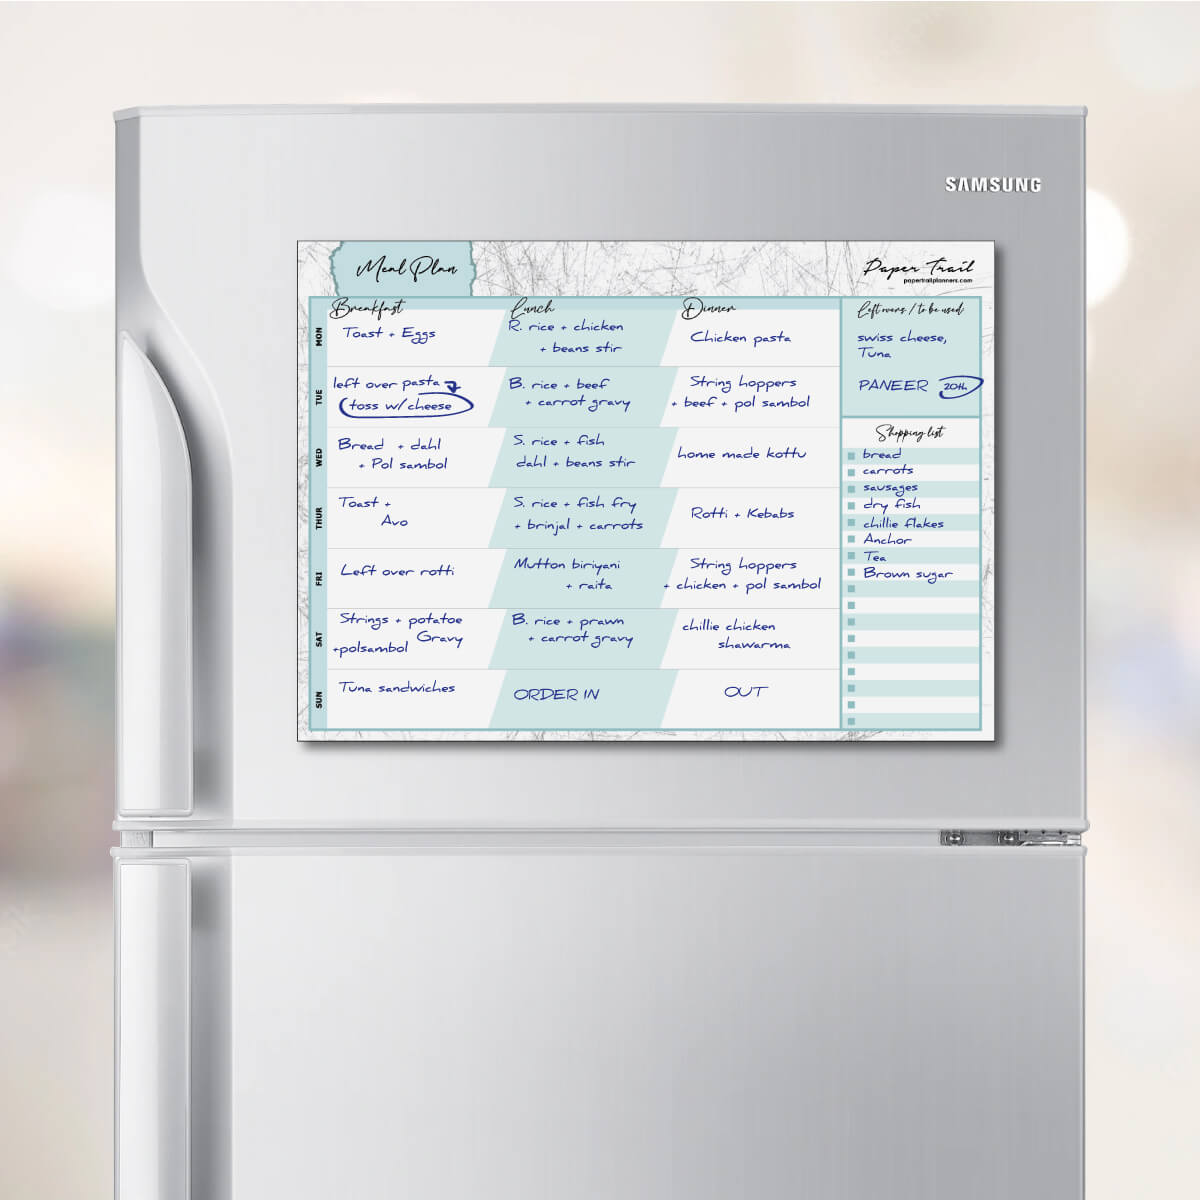 SAMSUNG
Meal Plan
Paper Trail
papertrailplanners.com
Breakfast
Lunch
Dinner
MON
Toast + Eggs
R. rice + chicken
+ beans stir
Chicken pasta
TUE
left over pasta
toss w/ cheese
B. rice + beef
+ carrot gravy
String hoppers
+ beef + pol sambol
WED
Bread + dahl
+ Pol sambol
S. rice + fish
dahl + beans stir
home made kottu
THUR
Toast +
Avo
S. rice + fish fry
+ brinjal + carrots
Rotti + Kebabs
FRI
Left over rotti
Mutton biriyani
+ raita
String hoppers
+ chicken + pol sambol
SAT
Strings + potatoe
Gravy
+polsambol
B. rice + prawn
+ carrot gravy
chillie chicken
shawarma
SUN
Tuna sandwiches
ORDER IN
OUT
Left overs / to be used
swiss cheese,
Tuna
PANEER 20th
Shopping list
bread
carrots
sausages
dry fish
chillie flakes
Anchor
Tea
Brown sugar